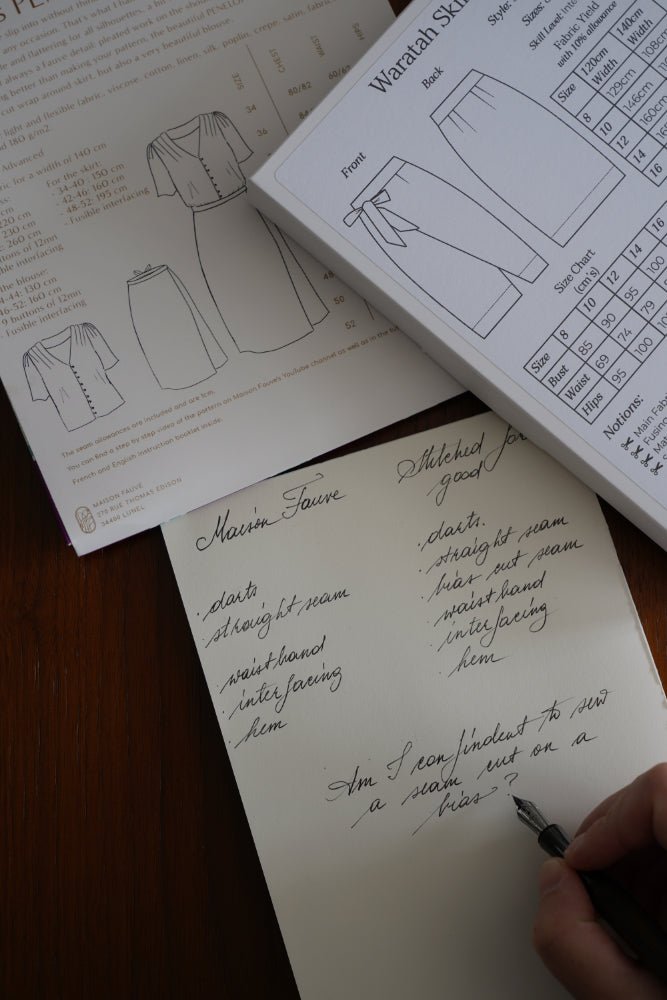 slip into without
any occasion. That's what I
and flattering for all silhouettes, a
always a Fauve detail: pleated work on the
better than making your pattern, the beautiful
cut wrap around skirt, but also a very beautiful blouse.
light and flexible fabric, viscose, cotton, linen, silk, poplin, crepe, satin, fabric,
180 g/m2.
Advanced
for a width of 140 cm
For the skirt:
- 34-40: 150 cm
- 42-46: 160 cm
- 48-52: 195 cm
- Fusible interfacing
220 cm
230 cm
: 260 cm
buttons of 12mm
interfacing
the blouse:
-44: 130 cm
46-52: 160 cm
9 buttons of 12mm
. Fusible interfacing
SIZE CHEST WAIST HIPS
34 80/82 60/62
36
48
50
52
The seam allowances are included and are 1cm.
You can find a step by step video of the pattern on Maison Fauve's YouTube channel as well as in the
French and English instruction booklet inside.
MAISON FAUVE
275 RUE THOMAS EDISON
34400 LUNEL
Waratah
Style:
Sizes:
Skill Level:
Fabric Yield
with 10% allowance
Size 120cm Width 140cm Width
8 129cm 108cm
10 146cm
12 160cm
14
16
Back
Front
Size Chart
(cm's)
Size 8 10 12 14 16
Bust 85 90 95 100
Waist 69 74 79
Hips 95 100
Notions:
Main
Maison Fauve
. darts
. straight seam
. waistband
. interfacing
. hem
Stitched for
good
. darts.
. straight seam
. bias cut seam
. waistband
. interfacing
. hem
Am I confindent to sew
a seam cut on a
bias?